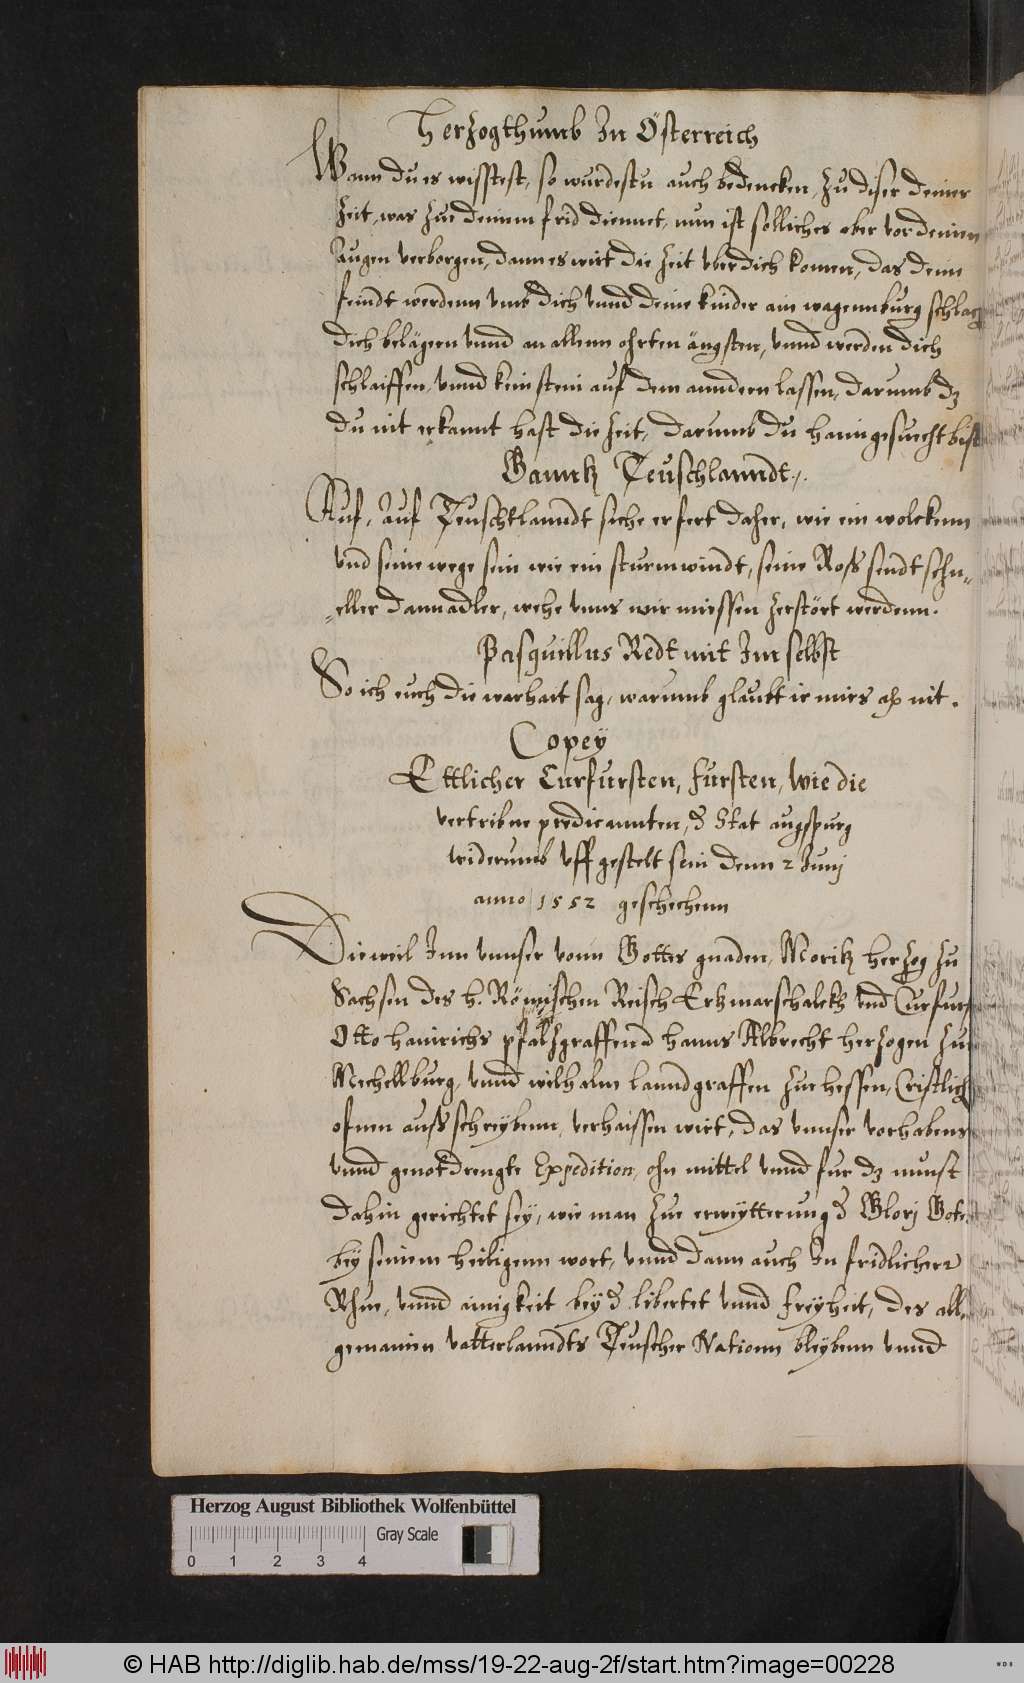 Herzogthumb In Österreich
Wann du es wisstest, so wurdestu auch bedencken, zu diser deiner
Zeit, was zue deinem frid diennet, nun ist solliches aber vor deinen
Augen verborgen, dann es wirt die Zeit vber dich komen, das dein
feindt werdenn vmb dich vnnd deine kinder ain wagennburg schlag
dich belägern vnnd an allenn ohrten ängsten, vnnd werden dich
schlaiffen, vnnd kein stein auf dem anndern lassen, darumb dz
du nit erkannt hast die Zeit, darumb du haimgesuecht bist
Ganntz Teuschlanndt.
Auf, Auf Teuschtlanndt siehe er fert daher, wie ein wolckenn
vnd seine wege sein wie ein sturmwindt, seine Ross sendt schn=
=eller dann adler, wehe vnns wir miessen zerstört werdenn.
Pasquillus Redt mit Im selbst
So ich euch die warhait sag, warumb glaubt ir mirs nit.
Copey
Ettlicher Curfursten, fursten, wie die
vertribne predicannten, d Stat augspurg
widerumb vff gestelt sein denn 2 Junij
anno 1552 geschechenn
Dieweil Inn vnnser vonn Gottes gnaden, Moritz herzog zu
Sachsen des h. Römischen Reisch Ertzmarschalckh vnd Curfurs
Otto hainrichs pfalzgraffen d hanns Albrecht herzogen zu
Mechellburg, vnnd wilhalm lanndgraffen zue hessen, Cristlich
ofnen ausschreybenn, verhaissen wirt, das vnnser vorhabens
vnnd genotdrengte Expedition, ohn mittel vnnd fur dz nunst
dahin gerichtet sey, wie man zue erweytterung d Glorj Gote
bey seinem heiligenn wort, vnnd dann auch In fridlicher
Rhue, vnnd ainigkeit bey d libertet vnnd freyheit, des all
gemainen vatterlanndts Teuscher Nationn bleybenn vnnd
Herzog August Bibliothek Wolfenbüttel
Gray Scale
0 1 2 3 4
© HAB http://diglib.hab.de/mss/19-22-aug-2f/start.htm?image=00228